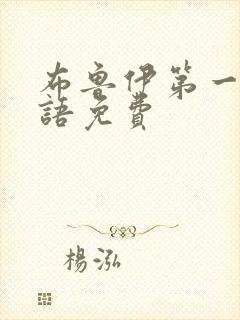 布魯伊第一
語免費
楊泓